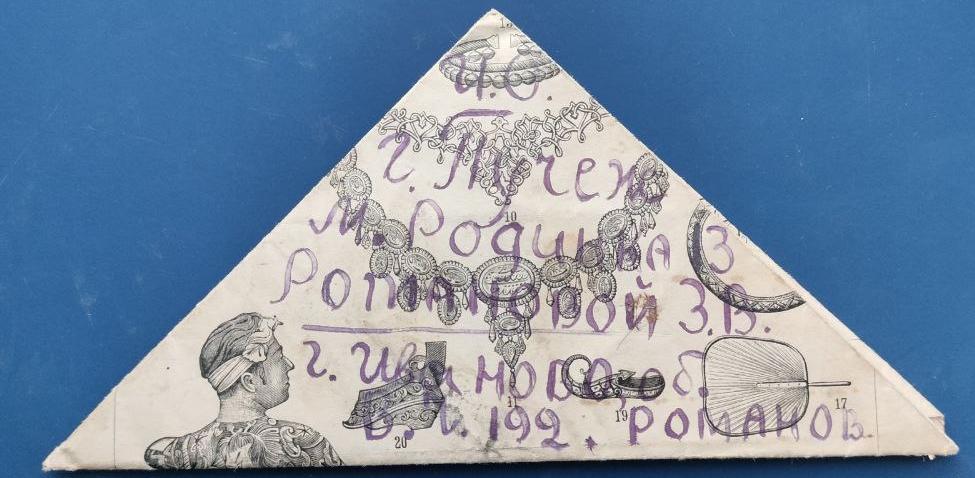 И.О.
г. Пучеж
М. Родинка 3
РОМАНОВОЙ З.В.
г. Иваново, об.
В. И. 192, РОМАНОВ.
10
11
20
19
17